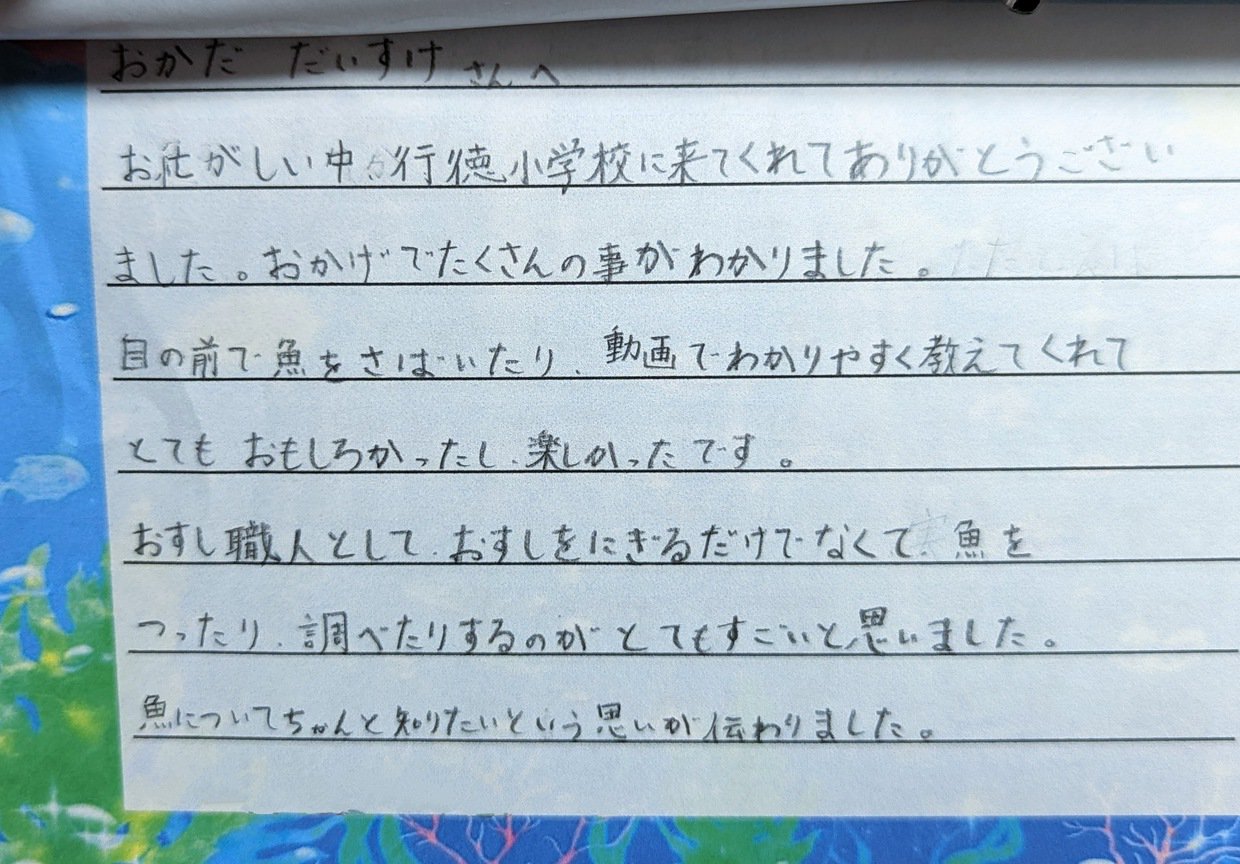 おかだ だいすけ さんへ
お忙がしい中行徳小学校に来てくれてありがとうござい
ました。おかげでたくさんの事がわかりました。
目の前で魚をさばいたり、動画でわかりやすく教えてくれて
とてもおもしろかったし、楽しかったです。
おすし職人として、おすしをにぎるだけでなくて魚を
つったり、調べたりするのがとてもすごいと思いました。
魚についてちゃんと知りたいという思いが伝わりました。